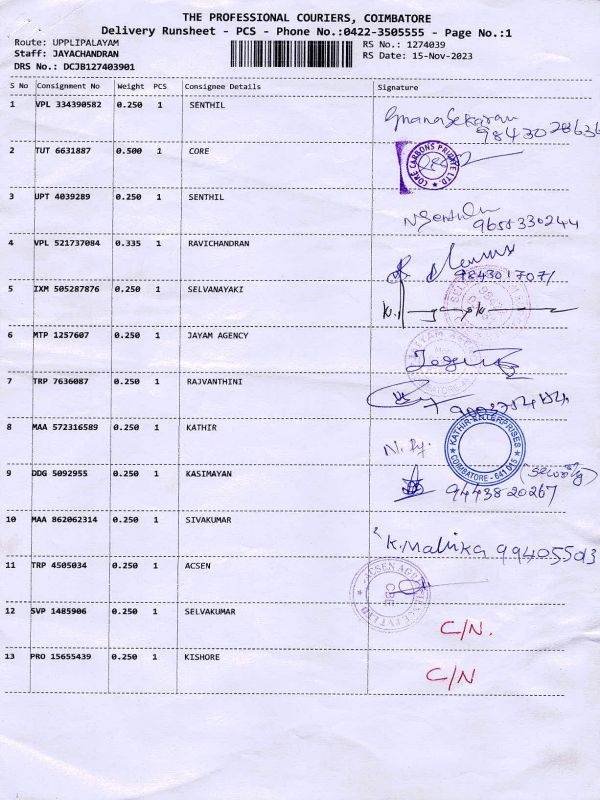 THE PROFESSIONAL COURIERS, COIMBATORE
Delivery Runsheet - PCS - Phone No.:0422-3505555 - Page No.:1
Route: UPPLIPALAYAM RS No.: 1274039
Staff: JAYACHANDRAN RS Date: 15-Nov-2023
DRS No.: DCJB127403901
S No Consignment No Weight PCS Consignee Details Signature
1 VPL 334390582 0.250 1 SENTHIL
GnanaSekaran
2 TUT 6631887 0.500 1 CORE
CORE CARBONS PRIVATE LTD.
3 UPT 4039289 0.250 1 SENTHIL
9655330244
4 VPL 521737084 0.335 1 RAVICHANDRAN
9843017071
5 IXM 505287876 0.250 1 SELVANAYAKI
6 MTP 1257607 0.250 1 JAYAM AGENCY
7 TRP 7636087 0.250 1 RAJVANTHINI
8 MAA 572316589 0.250 1 KATHIR
KATHIR ENTERPRISES
COIMBATORE - 641 015
9 DDG 5092955 0.250 1 KASIMAYAN
9443820267
10 MAA 862062314 0.250 1 SIVAKUMAR
K. Mallika 994055013
11 TRP 4505034 1 0.250 ACSEN
CBE
12 SVP 1485906 0.250 1 SELVAKUMAR
C/N.
13 PRO 15655439 0.250 1 KISHORE
C/N